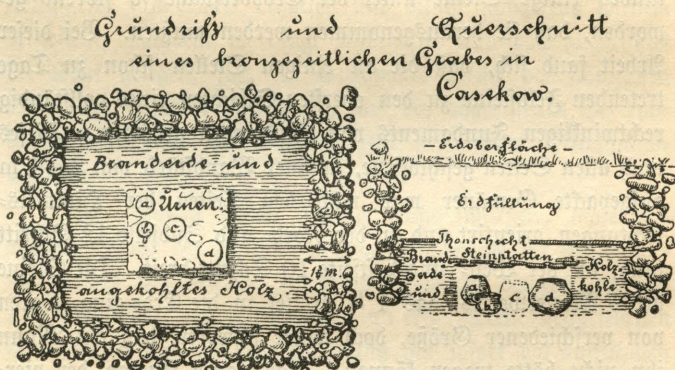 Grundriß und Querschnitt
eines bronzezeitlichen Grabes in
Casekow.
Branderde und
a Urnen.
b c.
d
angekohltes Holz.
1½ m.
- Erdoberfläche -
Erdfüllung
Thonschecht
Steinplatten
Brand-
erde
und
Holz-
kohle
a
b c. d